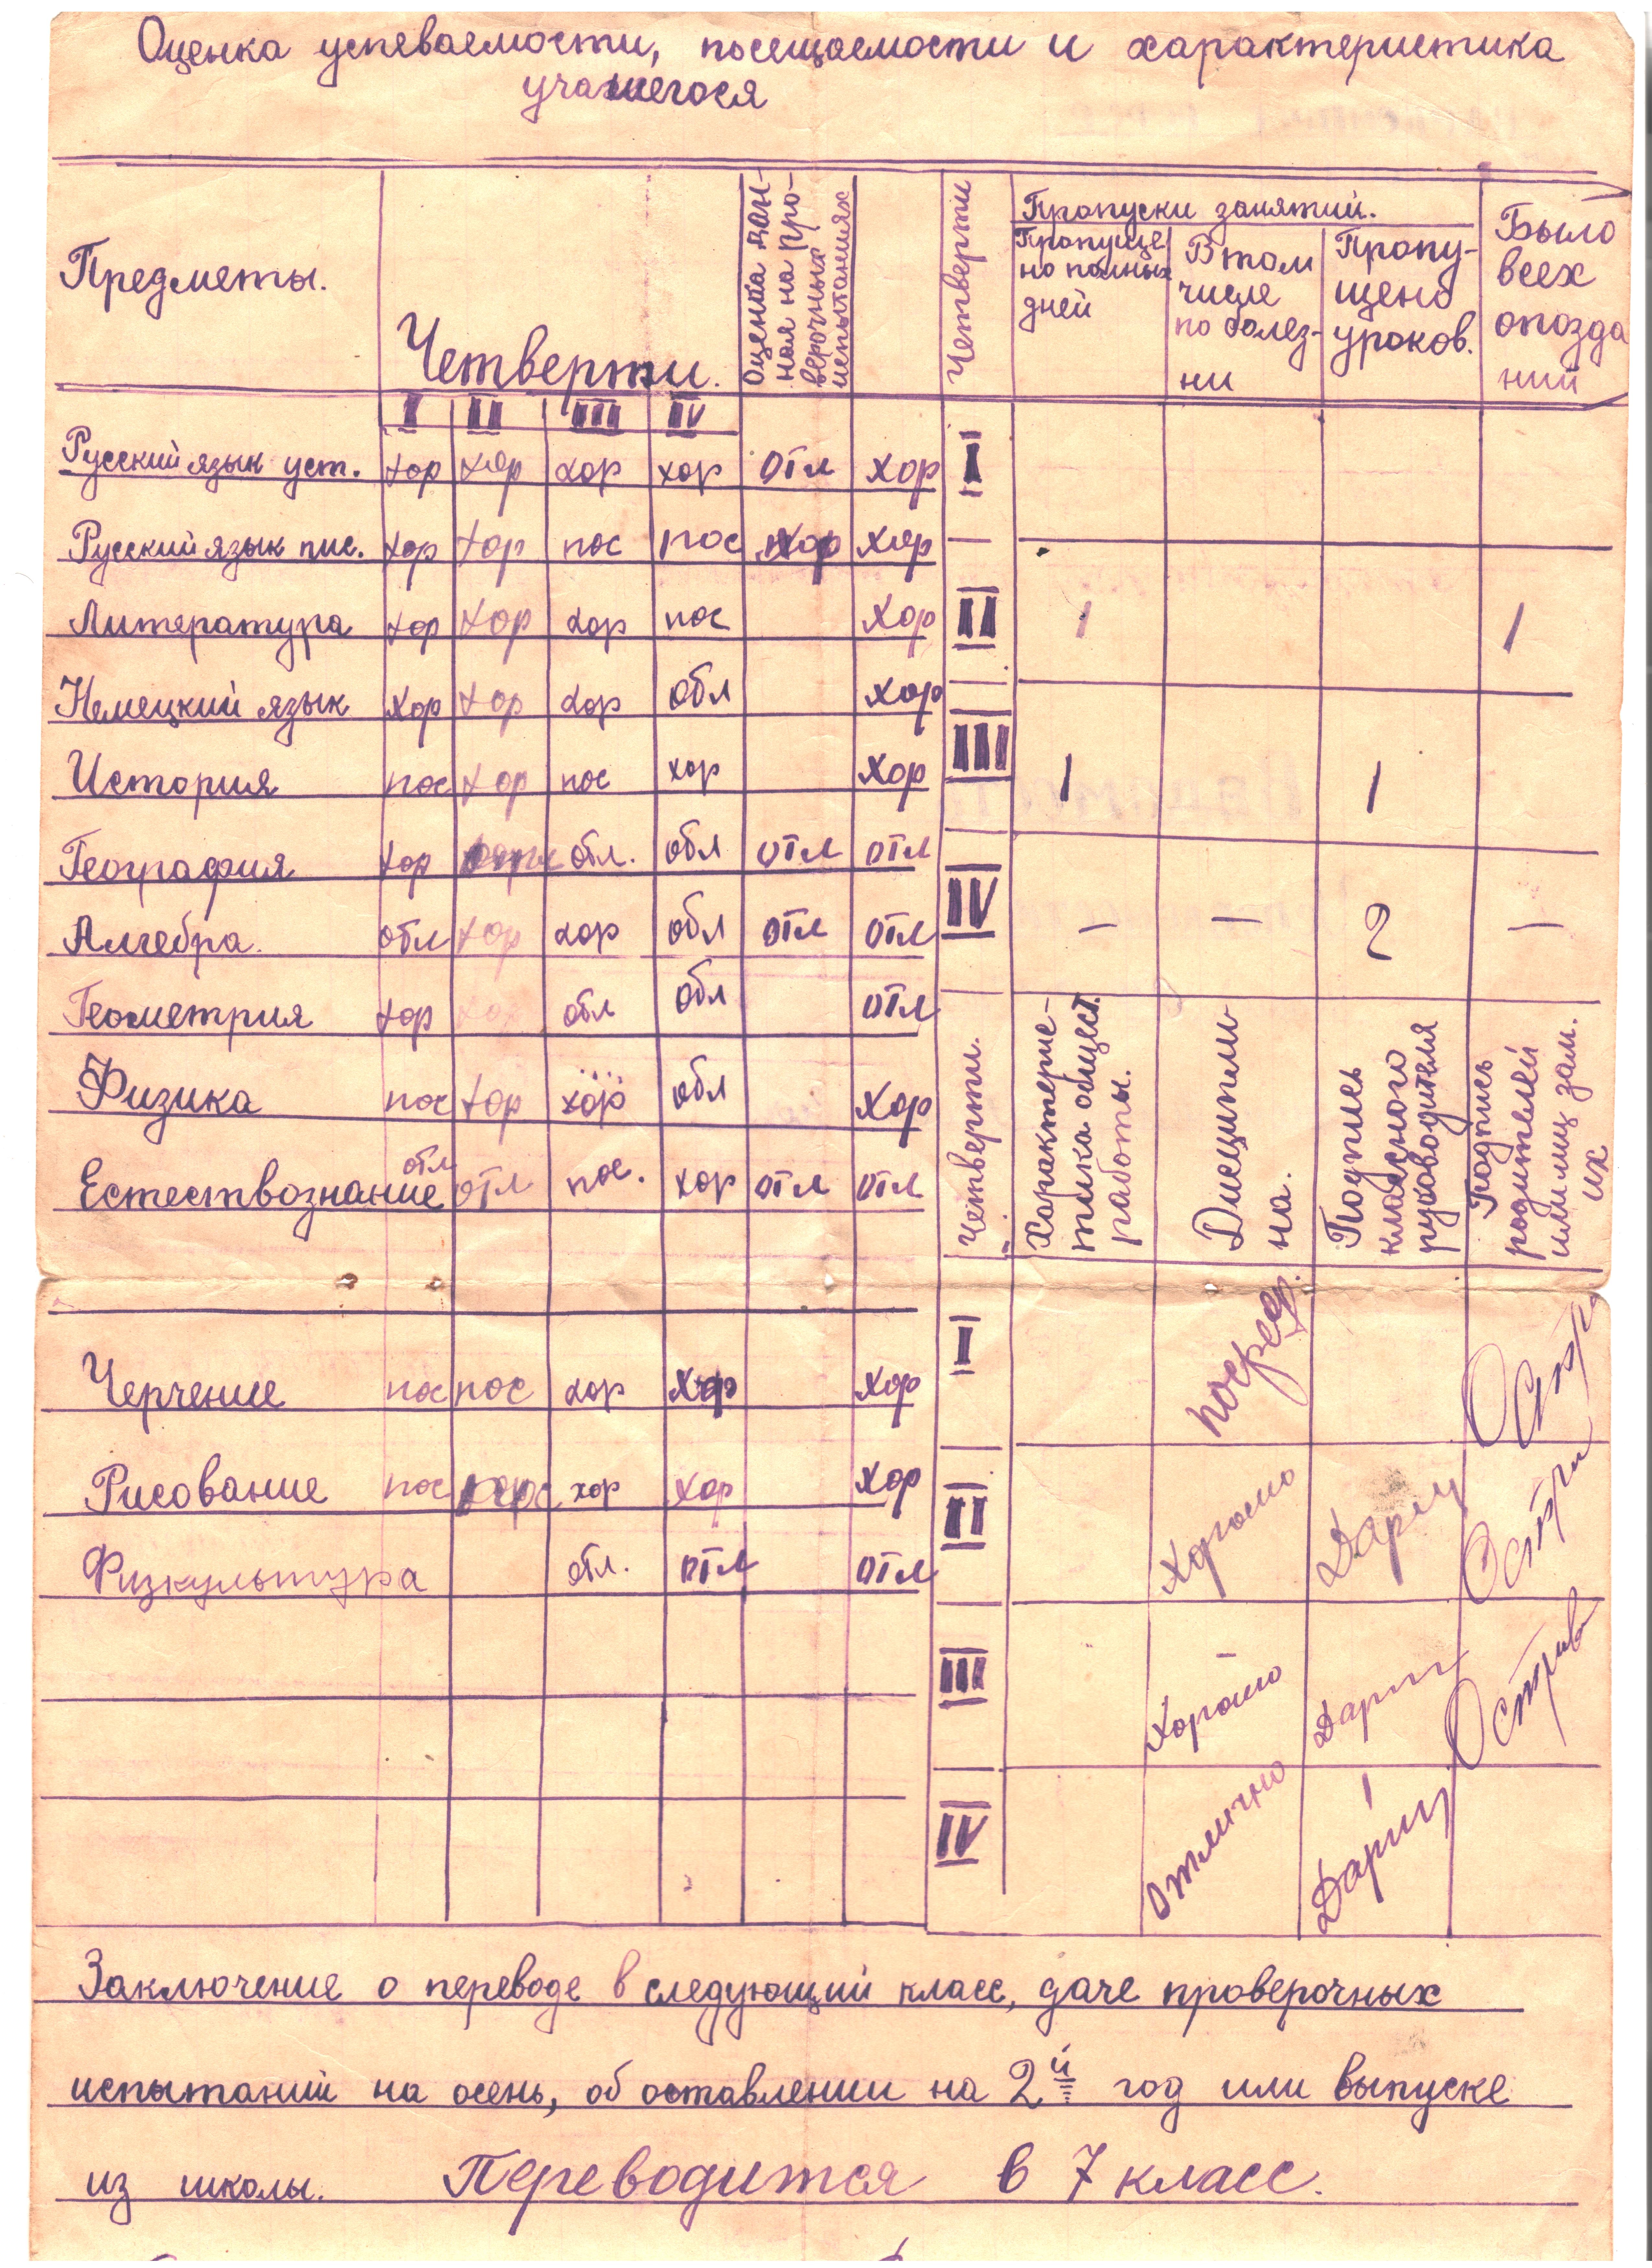 Оценка успеваемости, посещаемости и характеристика
учащегося
Предметы.
Четверти.
Оценка дан-
ная на про-
верочных
испытаниях
Четверти
Пропуски занятий.
Пропуще
но полных
дней
В том
числе
по болез-
ни
Пропу-
щено
уроков.
Было
всех
опозда
ний
I II III IV
Русский язык уст. хор хор хор хор отл хор I
Русский язык пис. хор хор пос пос хор хор
Литература хор хор хор пос хор II 1 1
Немецкий язык хор хор хор обл хор
История пос хор пос хор хор III 1 1
География хор отл. обл отл отл
Алгебра. обл хор хор обл отл отл IV — — 2 —
Геометрия хор хор обл обл отл
Физика пос хор хор обл хор
Естествознание отл отл пос. хор отл отл
Четверти.
Характерис-
тика общест.
работы.
Дисциплин
на.
Подпись
классного
руководителя
Подпись
родителей
или лиц зам.
их
Черчение пос пос хор хор хор I посред.
Рисование пос хор хор хор II Хорошо
Физкультура отл. отл отл
III Хорошо
IV Отлично
Заключение о переводе в следующий класс, даче проверочных
испытаний на осень, об оставлении на 2й год или выпуске
из школы. Переводится в 7 класс.